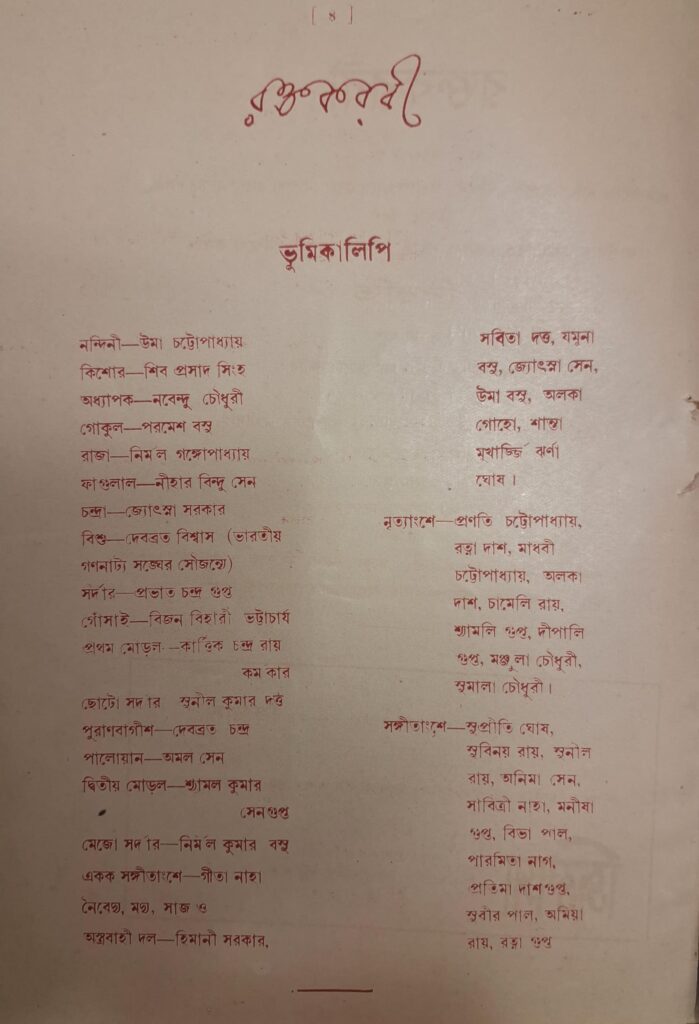 [ ৪ ]
রক্তকরবী
ভূমিকালিপি
নন্দিনী—উমা চট্টোপাধ্যায়
কিশোর—শিব প্রসাদ সিংহ
অধ্যাপক—নবেন্দু চৌধুরী
গোকুল—পরমেশ বসু
রাজা—নির্মল গঙ্গোপাধ্যায়
ফাগুলাল—নীহার বিন্দু সেন
চন্দ্রা—জ্যোৎস্না সরকার
বিশু—দেবব্রত বিশ্বাস (ভারতীয়
গণনাট্য সঙ্ঘের সৌজন্যে)
সর্দার—প্রভাত চন্দ্র গুপ্ত
গোঁসাই—বিজন বিহারী ভট্টাচার্য
প্রথম মোড়ল—কার্ত্তিক চন্দ্র রায়
কর্মকার
ছোটো সর্দার সুনীল কুমার দত্ত
পুরাণবাগীশ—দেবব্রত চন্দ্র
পালোয়ান—অমল সেন
দ্বিতীয় মোড়ল—শ্যামল কুমার
সেনগুপ্ত
মেজো সর্দার—নির্মল কুমার বসু
একক সঙ্গীতাংশে—গীতা নাহা
নৈবেদ্য, মদ্য, সাজ ও
অস্ত্রবাহী দল—হিমানী সরকার,
সবিতা দত্ত, যমুনা
বসু, জ্যোৎস্না সেন,
উমা বসু, অলকা
গোহো, শান্তা
মুখার্জ্জি ঝর্ণা
ঘোষ ।
নৃত্যাংশে—প্রণতি চট্টোপাধ্যায়,
রত্না দাশ, মাধবী
চট্টোপাধ্যায়, অলকা
দাশ, চামেলি রায়,
শ্যামলি গুপ্ত, দীপালি
গুপ্ত, মঞ্জুলা চৌধুরী,
সুমালা চৌধুরী ।
সঙ্গীতাংশে—সুপ্রীতি ঘোষ,
সুবিনয় রায়, সুনীল
রায়, অনিমা সেন,
সাবিত্রী নাহা, মনীষা
গুপ্ত, বিভা পাল,
পারমিতা নাগ,
প্রতিমা দাশগুপ্ত,
সুবীর পাল, অমিয়া
রায়, রত্না গুপ্ত